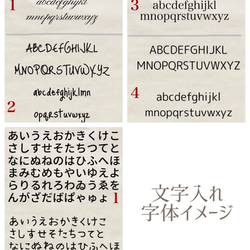 1
abcdefghijkl
mnopqrstuvwxyz
ABCDEFGHIJKL
MNOPQRSTUVWXYZ
abcdefghijklmn
2
opqrstuvwxyz
3
abcdefghijkl
mnopqrstuvwxyz
ABCDEFGHIJKL
MNOPQRSTUVWXYZ
4
abcdefghijkl
mnopqrstuvwxyz
あいうえおかきくけこ
さしすせそたちつてと
なにぬねのはひふへほ
まみむめもやいゆえよ
らりるれろわゐうゑを
んがざだばぱゃゅょ
1
あいうえおかきくけこ
さしすせそたちつてと
なにぬねのはひふへほ
文字入れ
字体イメージ